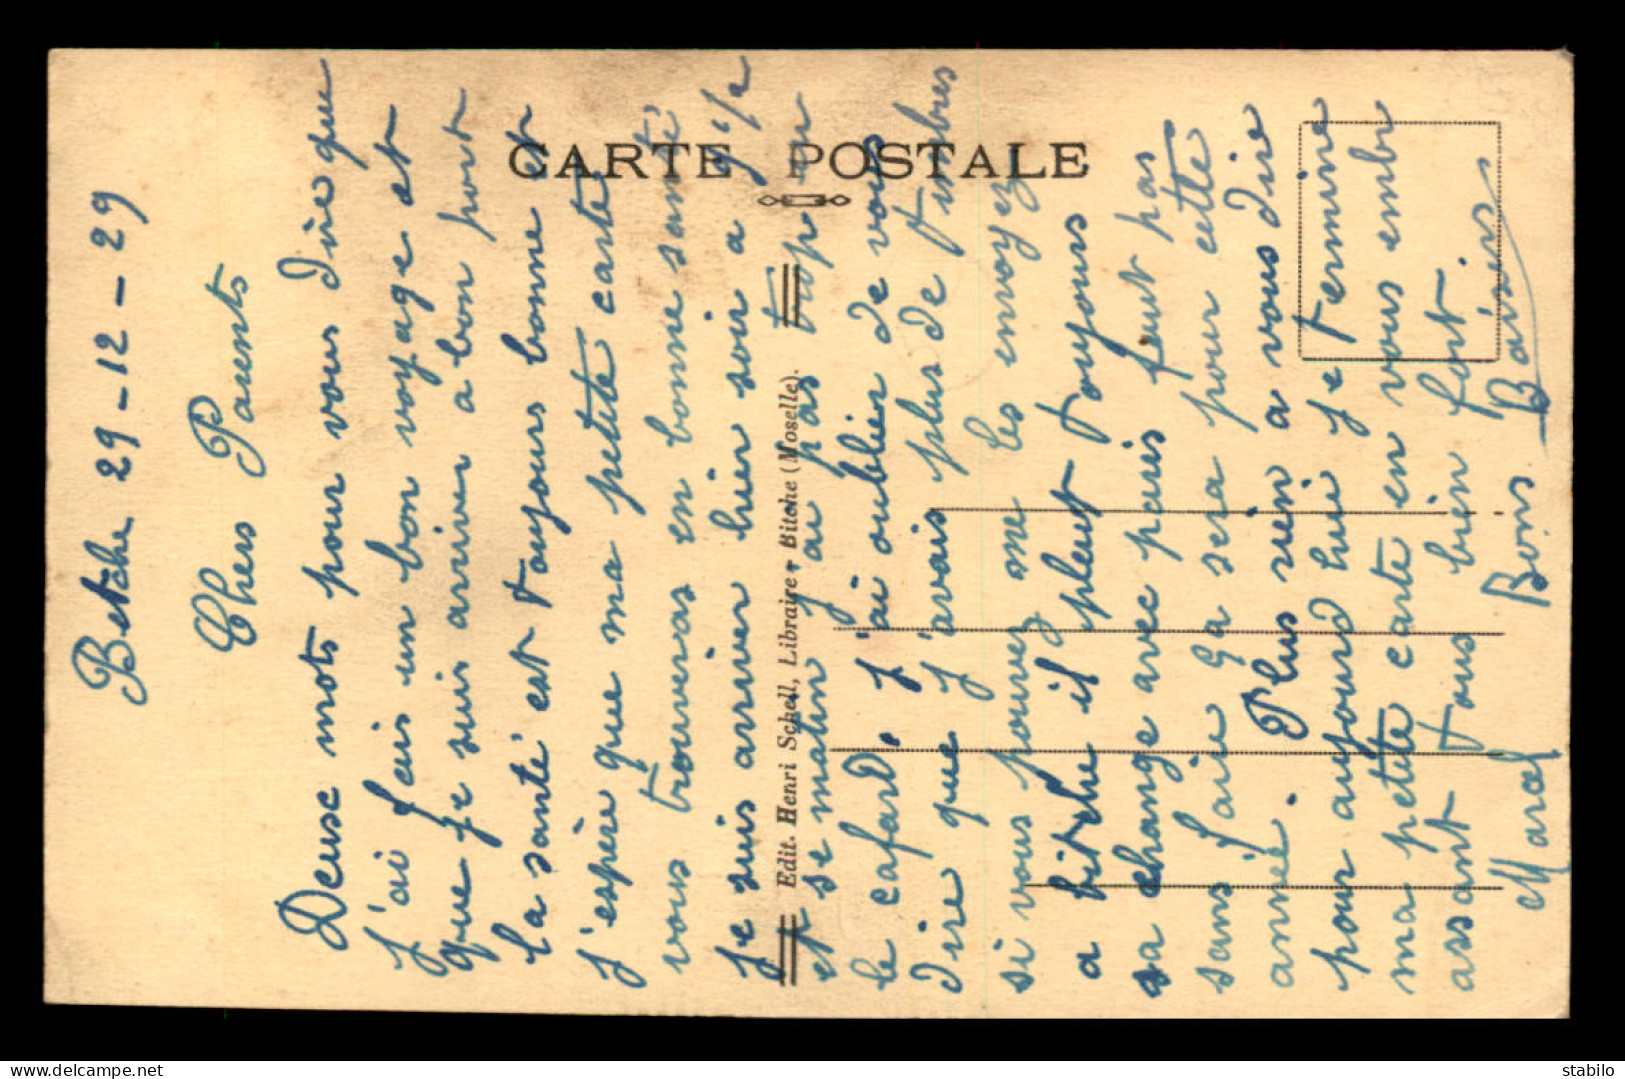 CARTE POSTALE
Edit. Henri Schell, Libraire, Bitche (Moselle).
Betche 29-12-29
Chers Parents
Deuse mots pour vous dire que
j'ai fais un bon voyage et
que je suis arriver a bon port
la santé est toujours bonne et
j'espère que ma petite carte
vous trouveras en bonne santé
je suis arriver hier soir a
et se matin j'ai pas trop eu
le cafard, j'ai oublier de vous
dire que j'avais plus de timbres
si vous pouvez me les envoyez
a bitche il pleut toujours
sa change avec paris faut pas
sans faire ça sera pour cette
année. Plus rien a vous dire
pour aujourd hui je termine
ma petite carte en vous embr
assant tous bien fort.
Marcel Bons Baisers
stabilo